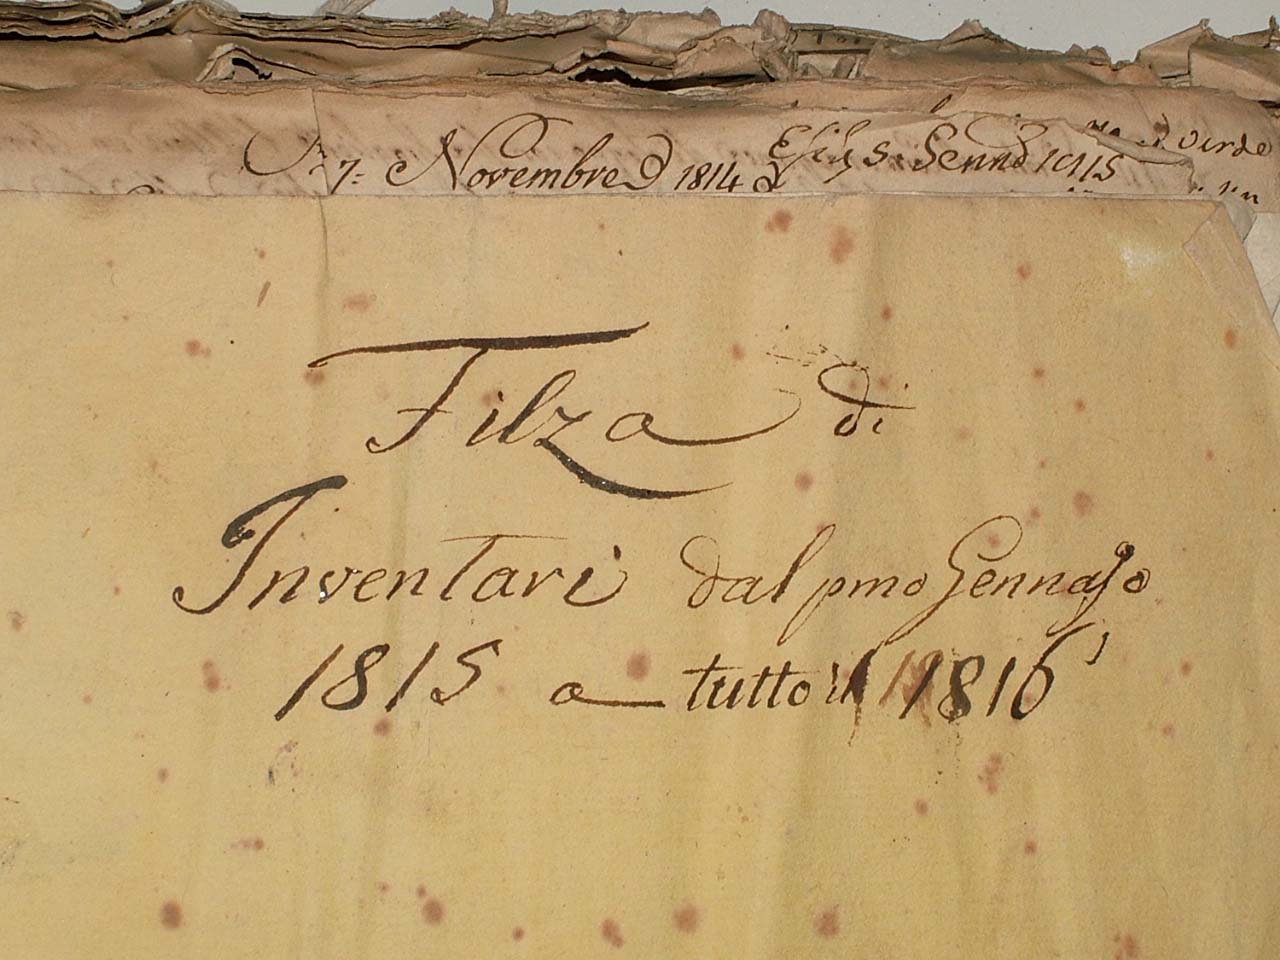 7: Novembre 1814
Filza di
Inventari dal pmo Gennajo
1815 a tutto il 1816